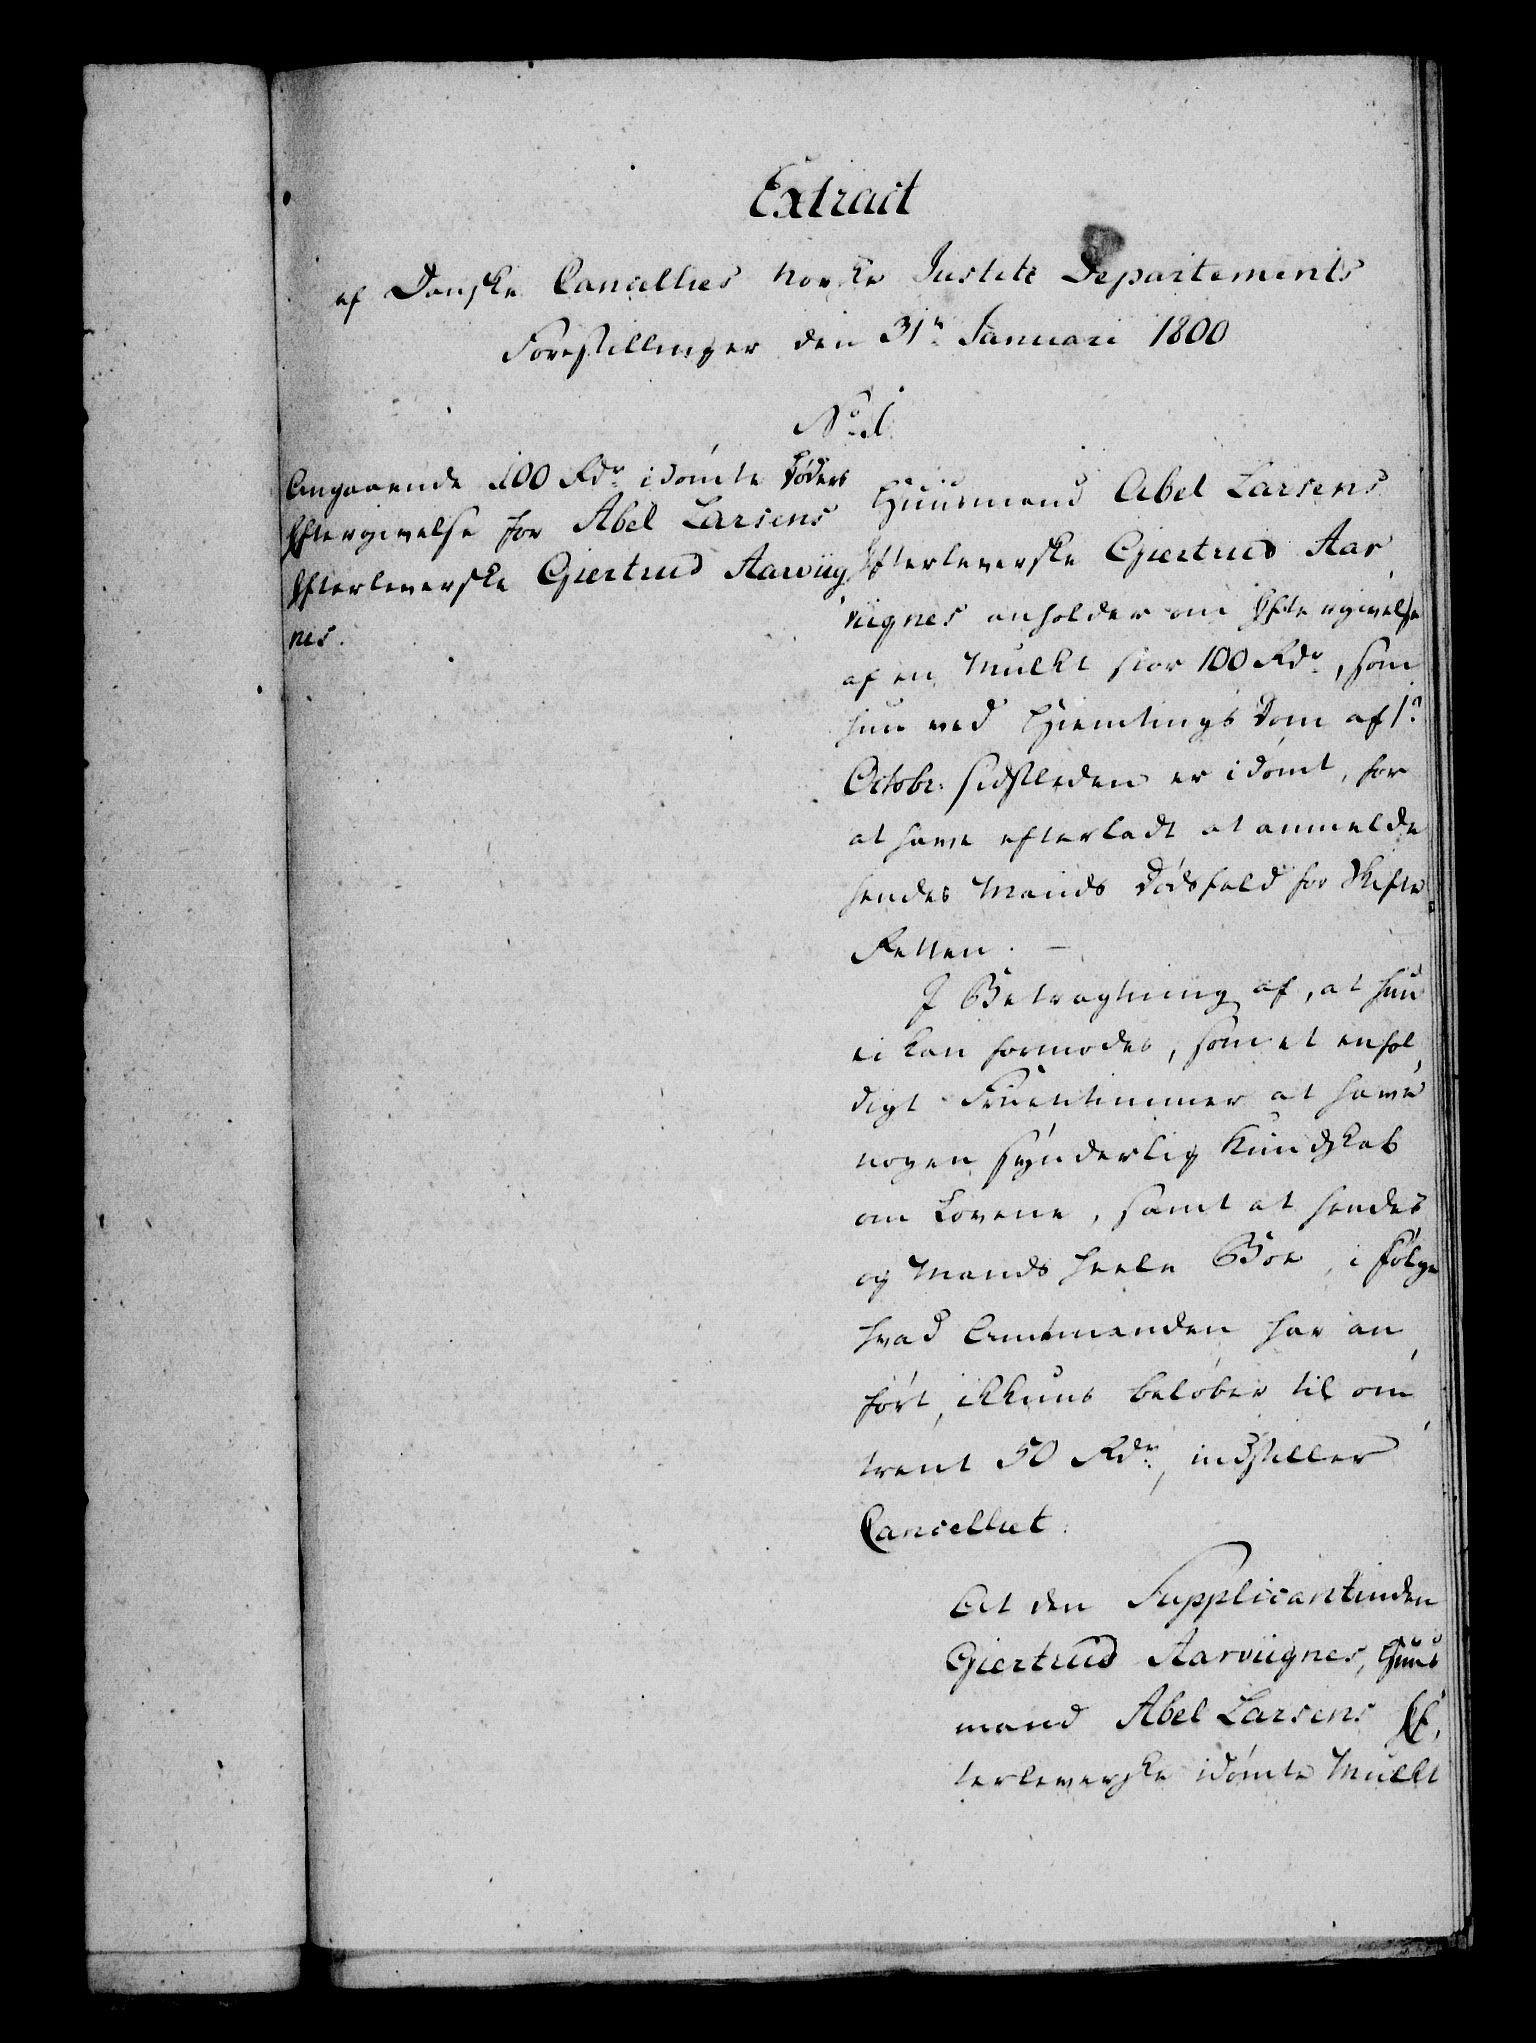 Extract
af Danske Cancellies Norske Justits Departements
Forestillinger den 31te Januari 1800
No 1.
Angaaende 100 Rdr idømte Bøders
Eftergivelse for Abel Larsens
Efterleverske Gjertrud Aarviig
nes.
Huusmand Abel Larsens
Efterleverske Gjertrud Aar
viignes anholder om Eftergivelse
af en Mulkt stor 100 Rdr, som
hun ved Hiemtings Dom af 1te
Octobr. sidstleden er idømt, for
at have efterladt at anmelde
hendes Mands Dødsfald for Skifte
Retten. —
I Betragtning af, at hun
ei kan formodes, som et enfol
digt Fruentimmer at have
nogen synderlig Kundskab
om Lovene, samt at hendes
og Mands heele Boe, i følge
hvad Amtmanden har an
ført, ikkuns beløber til om
trent 50 Rdr, indstiller
Cancelliet:
At den Supplicantinden
Gjertrud Aarviignes, Huus
mand Abel Larsens Ef
terleverske idømte Mulkt